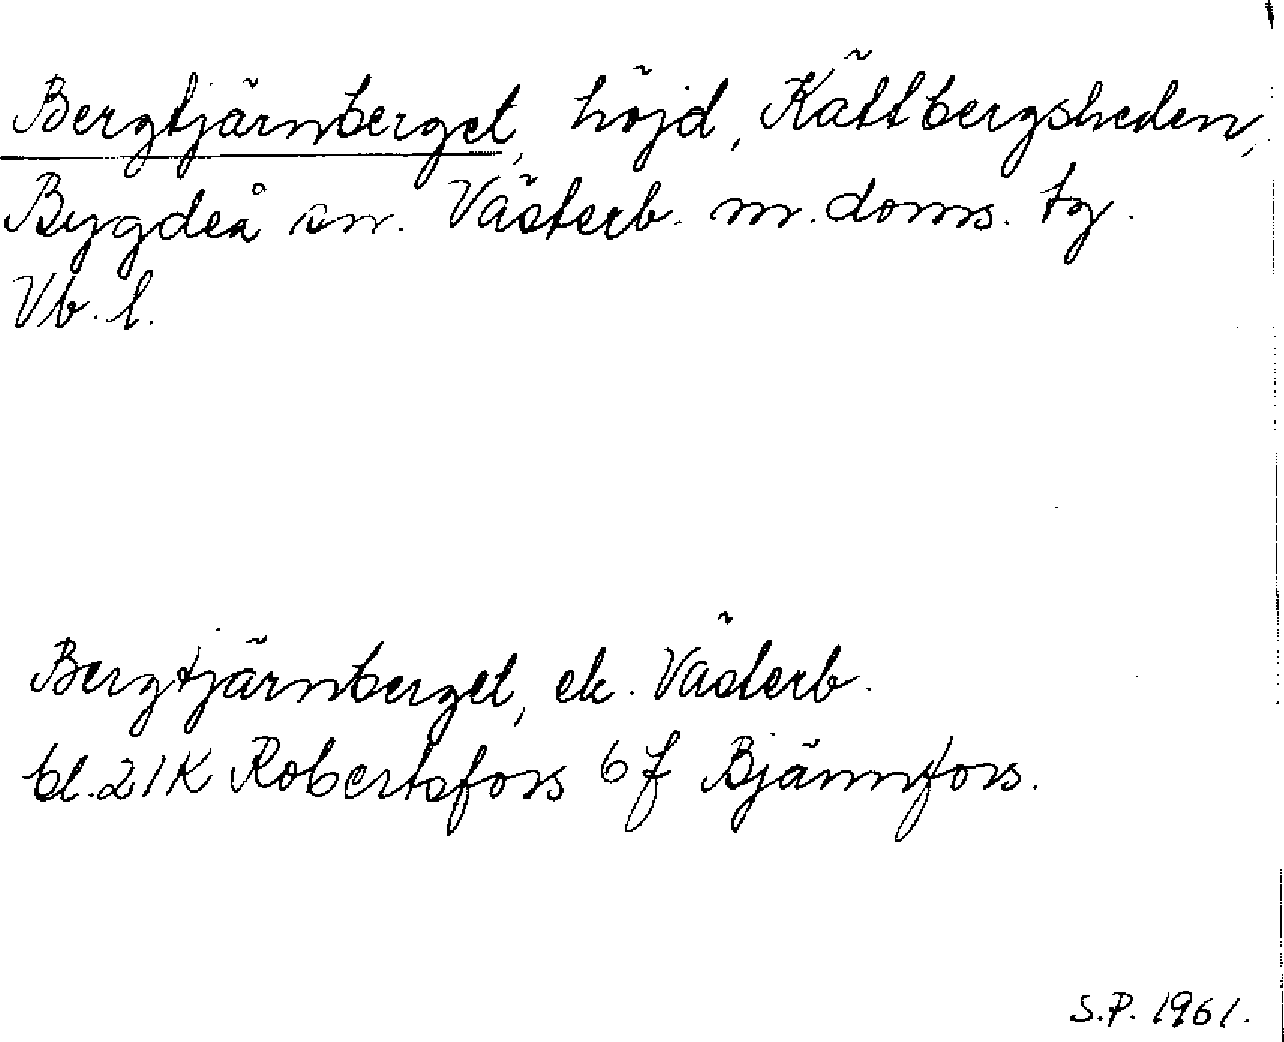 Bergtjärnberget, höjd, Kättbergsheden,
Bygdeå sn. Västerb. m. doms. tg.
Vb. l.
Bergtjärnberget, ek. Västerb.
bl. 21K Robertsfors 6 f Bjännfors.
S.P. 1961.